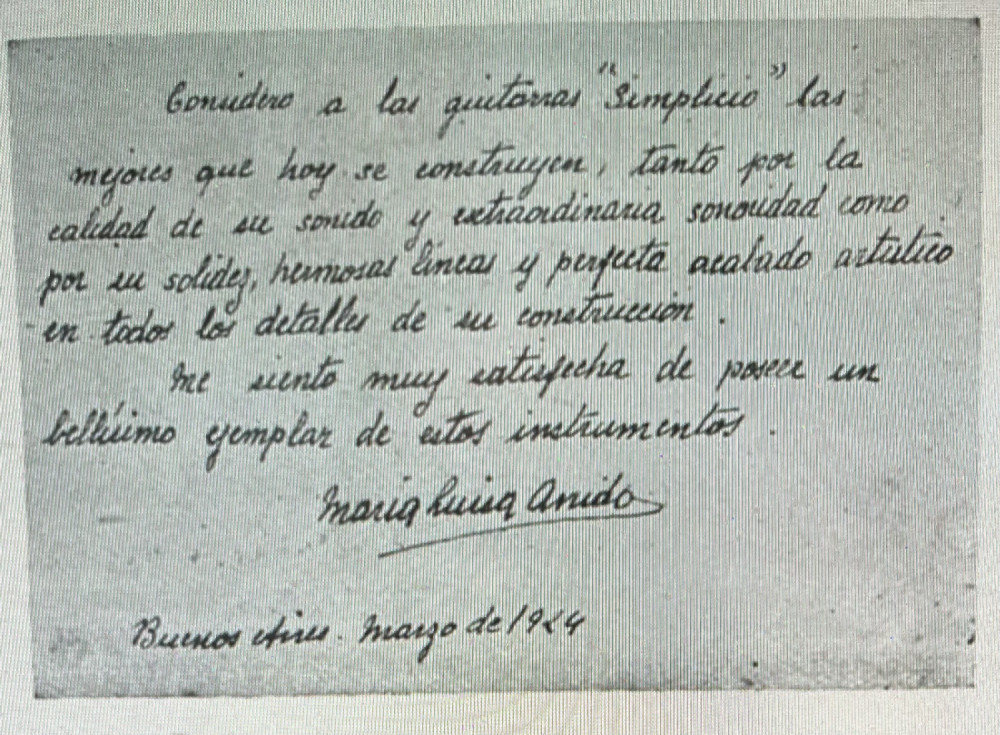 Considero a las guitarras "Simplicio" las
mejores que hoy se construyen, tanto por la
calidad de su sonido y extraordinaria sonoridad como
por su solidez, hermosas líneas y perfecto acabado artístico
en todos los detalles de su construcción.
Me siento muy satisfecha de poseer un
bellísimo ejemplar de estos instrumentos.
Maria Luisa Anido
Buenos Aires. Marzo de 1924